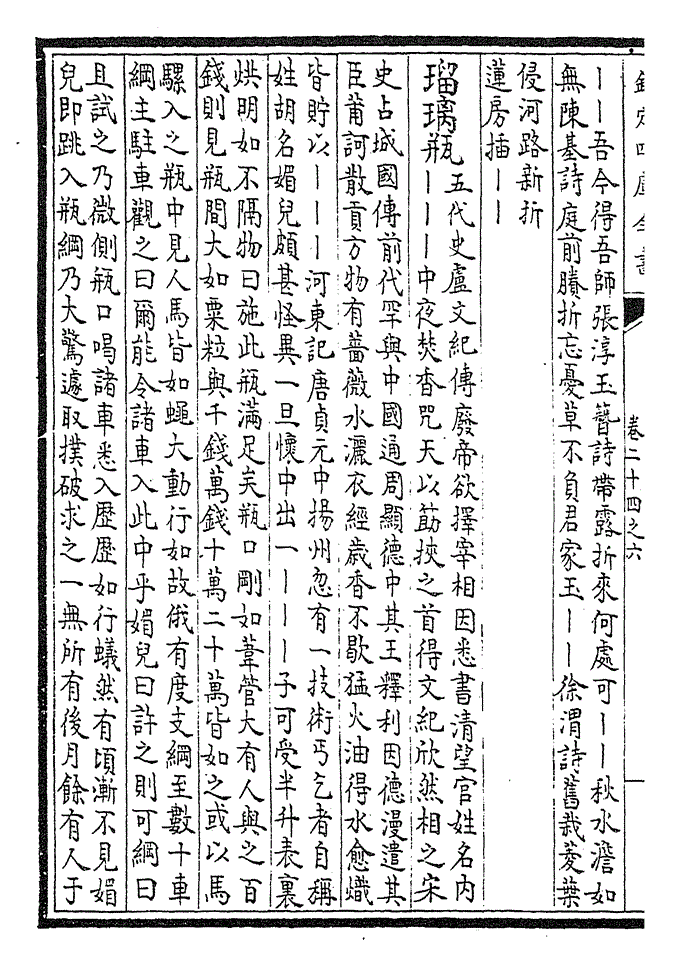 欽定四庫全書
卷二十四之六
｜｜吾今得吾師張淳玉簪詩帶露折來何處可｜｜秋水澹如
無陳基詩庭前賸折忘憂草不負君家玉｜｜徐渭詩舊栽菱葉
侵河路新折
蓮房插｜｜
瑠璃瓶
五代史盧文紀傳廢帝欲擇宰相因悉書清望官姓名内
｜｜｜中夜焚香咒天以筯挾之首得文紀欣然相之宋
史占城國傳前代罕與中國通周顯德中其王釋利因德漫遣其
臣莆訶散貢方物有薔薇水灑衣經歲香不歇猛火油得水愈熾
皆貯以｜｜｜河東記唐貞元中揚州忽有一技術丐乞者自稱
姓胡名媚兒頗甚怪異一旦懷中出一｜｜｜子可受半升表裏
烘明如不隔物曰施此瓶滿足矣瓶口剛如葦管大有人與之百
錢則見瓶間大如粟粒與千錢萬錢十萬二十萬皆如之或以馬
騾入之瓶中見人馬皆如蠅大動行如故俄有度支綱至數十車
綱主駐車觀之曰爾能令諸車入此中乎媚兒曰許之則可綱曰
且試之乃微側瓶口喝諸車悉入歷歷如行蟻然有頃漸不見媚
兒即跳入瓶綱乃大驚遽取撲破求之一無所有後月餘有人于